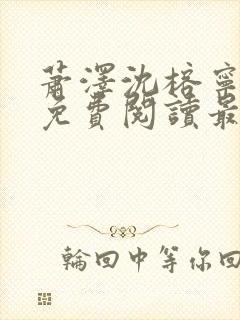 蕭澤沈榕寧
免費閱讀最
輪回中等你回